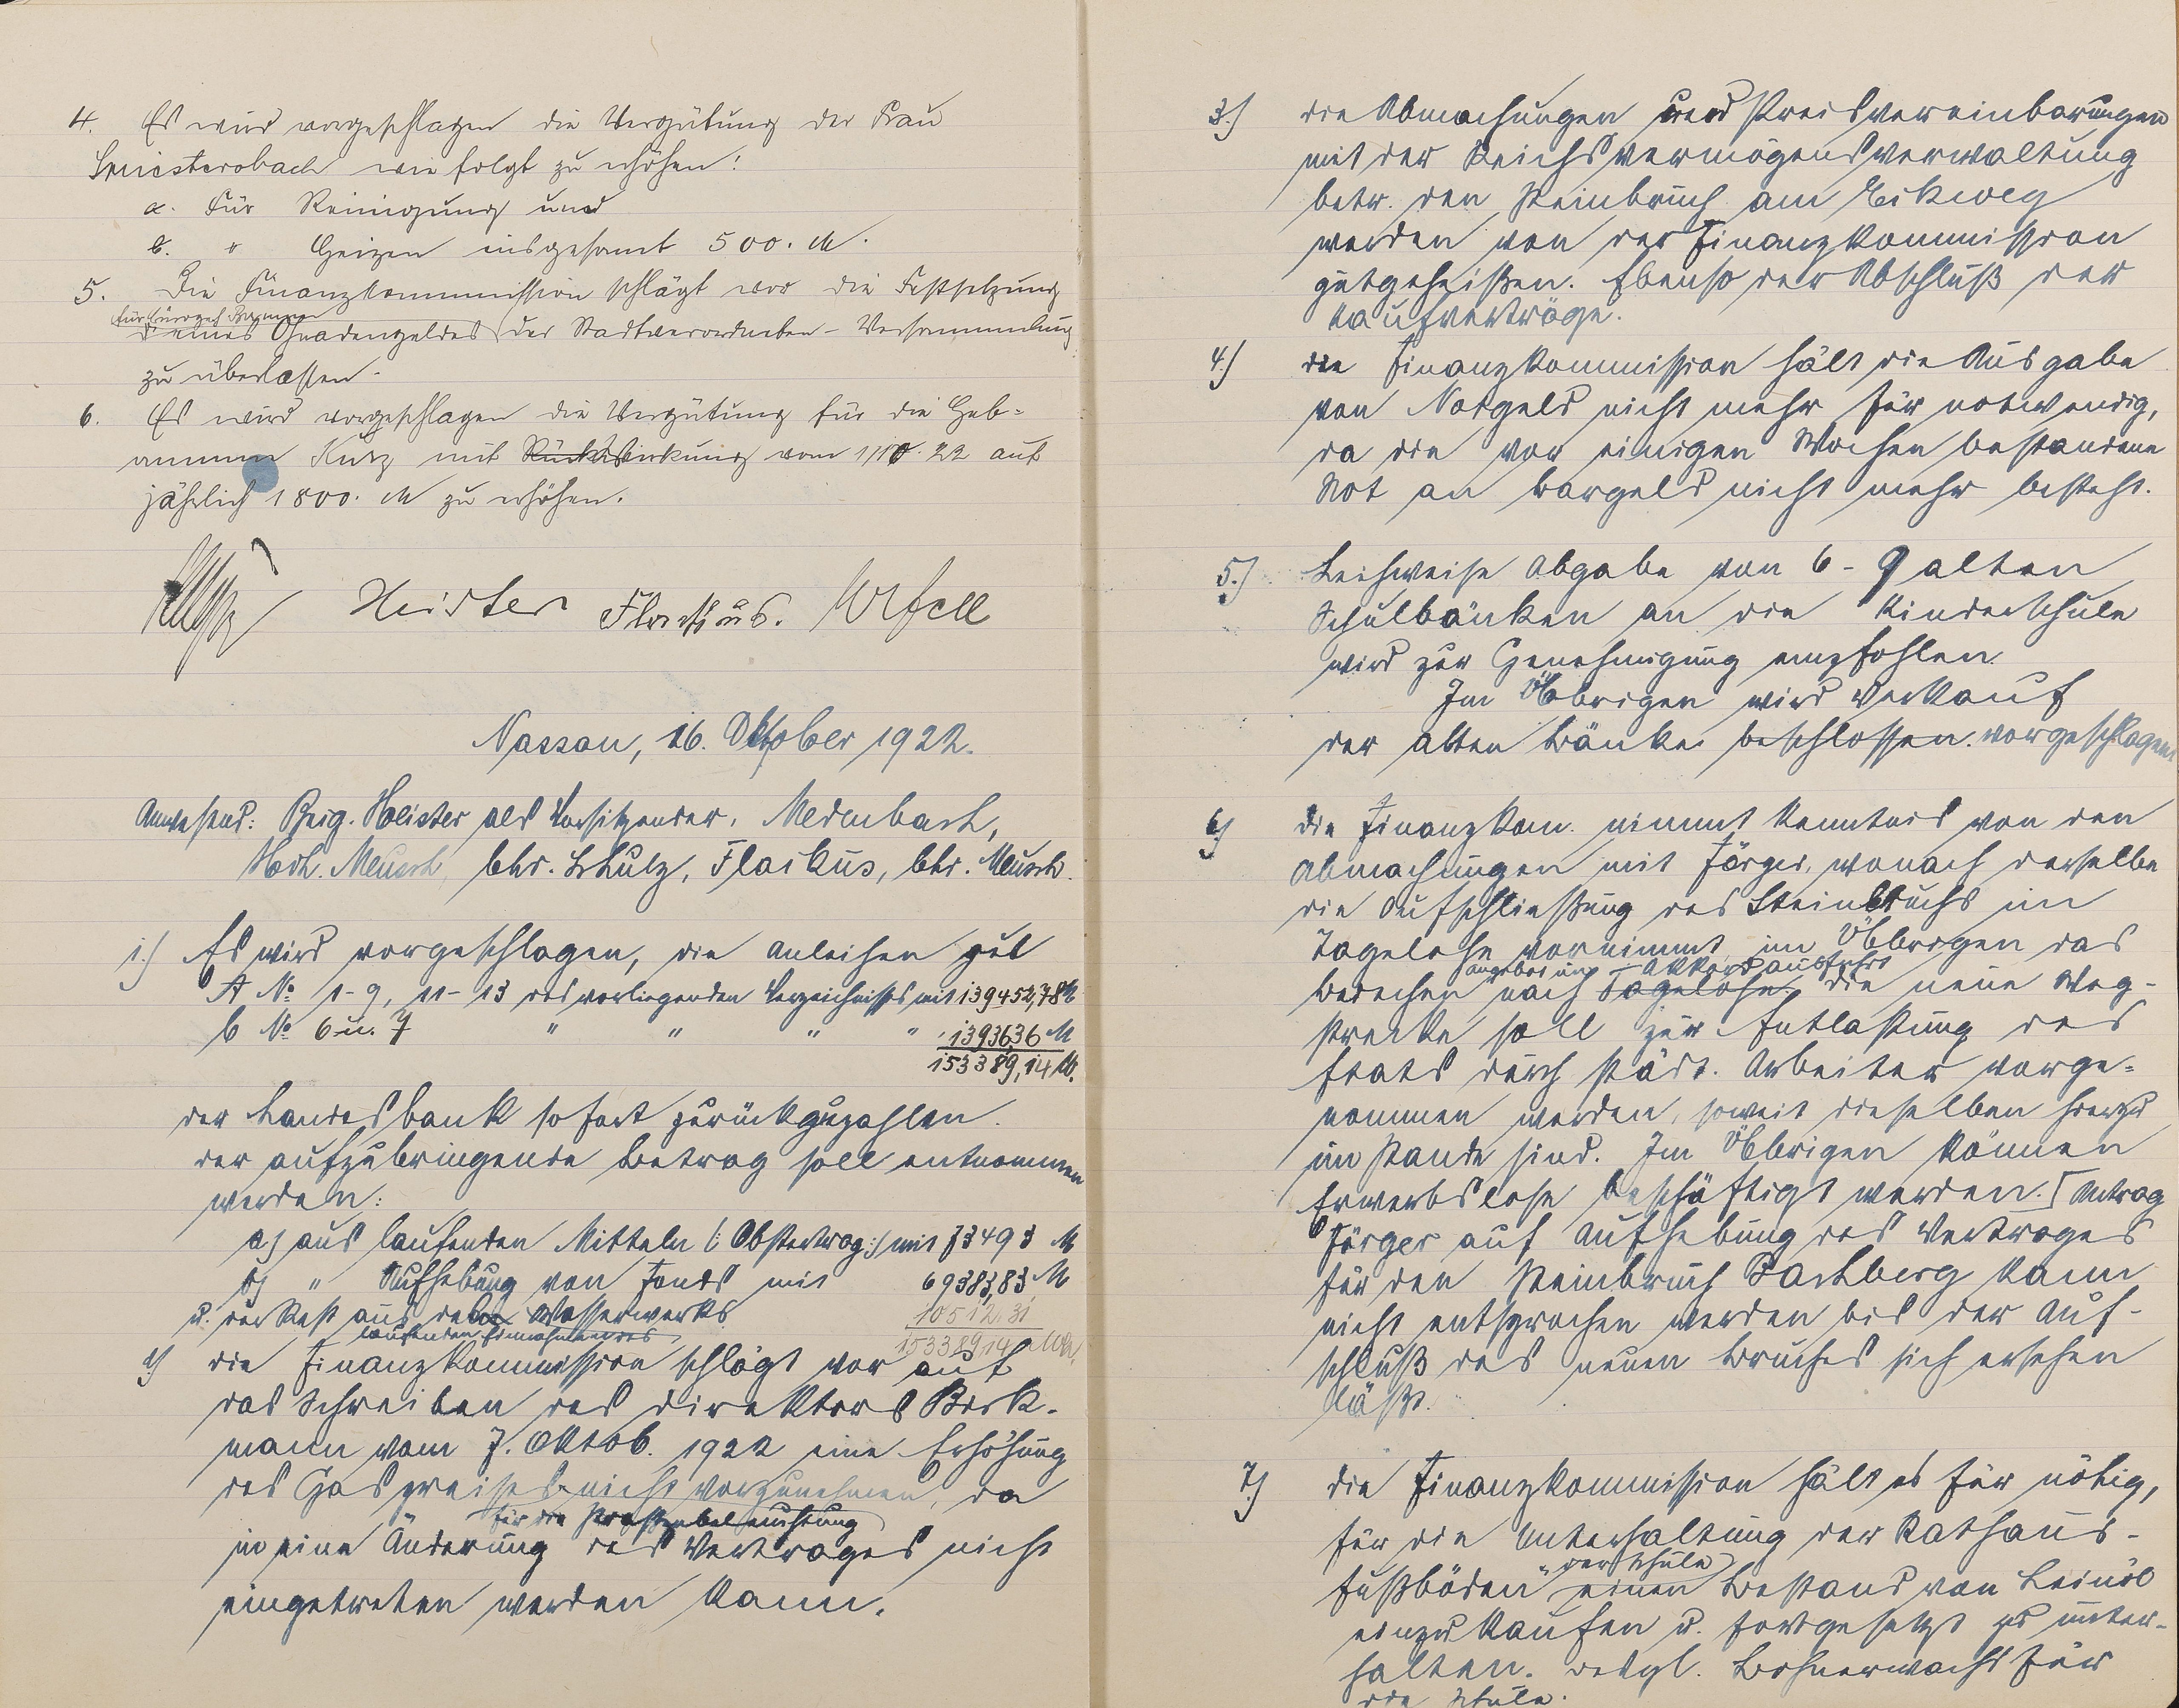 4. Es wird vorgeschlagen die Vergütung der Frau
wie folgt zu erhöhen:
a. Für Reinigung und
b. " Heizen insgesamt 500. M.
5. Die Finanzkommmission schlägt vor die Festsetzung
für
eines Gnadengeldes der Stadtverordneten-Versammlung
zu überlassen.
6. Es wird vorgeschlagen die Vergütung für die Heb-
ammen Kurz mit Rückwirkung vom 1/10.22 auf
jährlich 1800. M zu erhöhen.
Heister Flaskus.
Nassau, 16. Oktober 1922.
Anwesend: Beig. Heister als Vorsitzender, Medenbach,
Hch. Meusch, Chr. Schulz, Flaskus, Chr. Meusch.
1.) Es wird vorgeschlagen, die Anleihen
A No 1-9, 11-13 des vorliegenden Verzeichnisses mit 139452,78 M
b No 6 u. 7 " " " " 13936,36 M
153389,14 M.
der Landesbank sofort zurückzuzahlen.
Der aufzubringende Betrag soll entnommen
werden:
a) aus laufenden Mitteln (: Obstertrag :) mit 73493 M
b) " Aufhebung von Fonds mit 69383,83 M
u. der Rest aus den Wasserwerks 10512.31
laufenden Einnahmen des
153389,14 Mk.
2) Die Finanzkommission schlägt vor auf
das Schreiben des Direktors Berk-
mann vom 7. Oktob. 1922 eine Erhöhung
des Gaspreises nicht vorzunehmen, da
für die Straßenbeleuchtung
in eine Änderung des Vertrages nicht
eingetreten werden kann.
3.) Die Abmachungen und Preisvereinbarungen
mit der Reichsvermögensverwaltung
betr. den Steinbruch am Eikweg
werden von der Finanzkommission
gutgeheißen. Ebenso der Abschluß der
Kaufverträge.
4.) Die Finanzkommission hält die Ausgabe
von Notgeld nicht mehr für notwendig,
da die vor einigen Wochen bestandene
Not an Bargeld nicht mehr besteht.
5.) Leihweise Abgabe von 6-9 alten
Schulbänken an die Kinderschule
wird zur Genehmigung empfohlen.
Im Übrigen wird Verkauf
der alten Bänke beschlossen. vorgeschlagen
6) Die Finanzkom. nimmt Kenntnis von den
Abmachungen mit Jörges, wonach derselbe
die Aufschließung des Steinbruchs im
Tagelohn vornimmt, im Übrigen das
Angebot im Akkord ausführt
Brechen nach Tagelohn. Die neue Weg-
strecke soll zur Entlastung des
Etats durch städt. Arbeiter vorge-
nommen werden, soweit dieselben hierzu
im Stande sind. Im Übrigen können
Erwerbslose beschäftigt werden. [Antrag
Jörges auf Aufhebung des Vertrages
für den Steinbruch kann
nicht entsprochen werden bis der Auf-
schluß des neuen Bruches sich ersehen
läßt.
7.) Die Finanzkommission hält es für nötig,
für die Unterhaltung der Rathaus-
der Schule
fußböden einen Bestand von Leinöl
einzukaufen u. fortgesetzt zu unter-
halten. Desgl. Bohnerwachs für
die Schule.